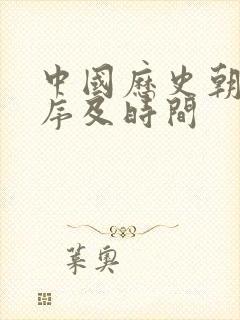 中國歷史朝
序及時間
葉奧